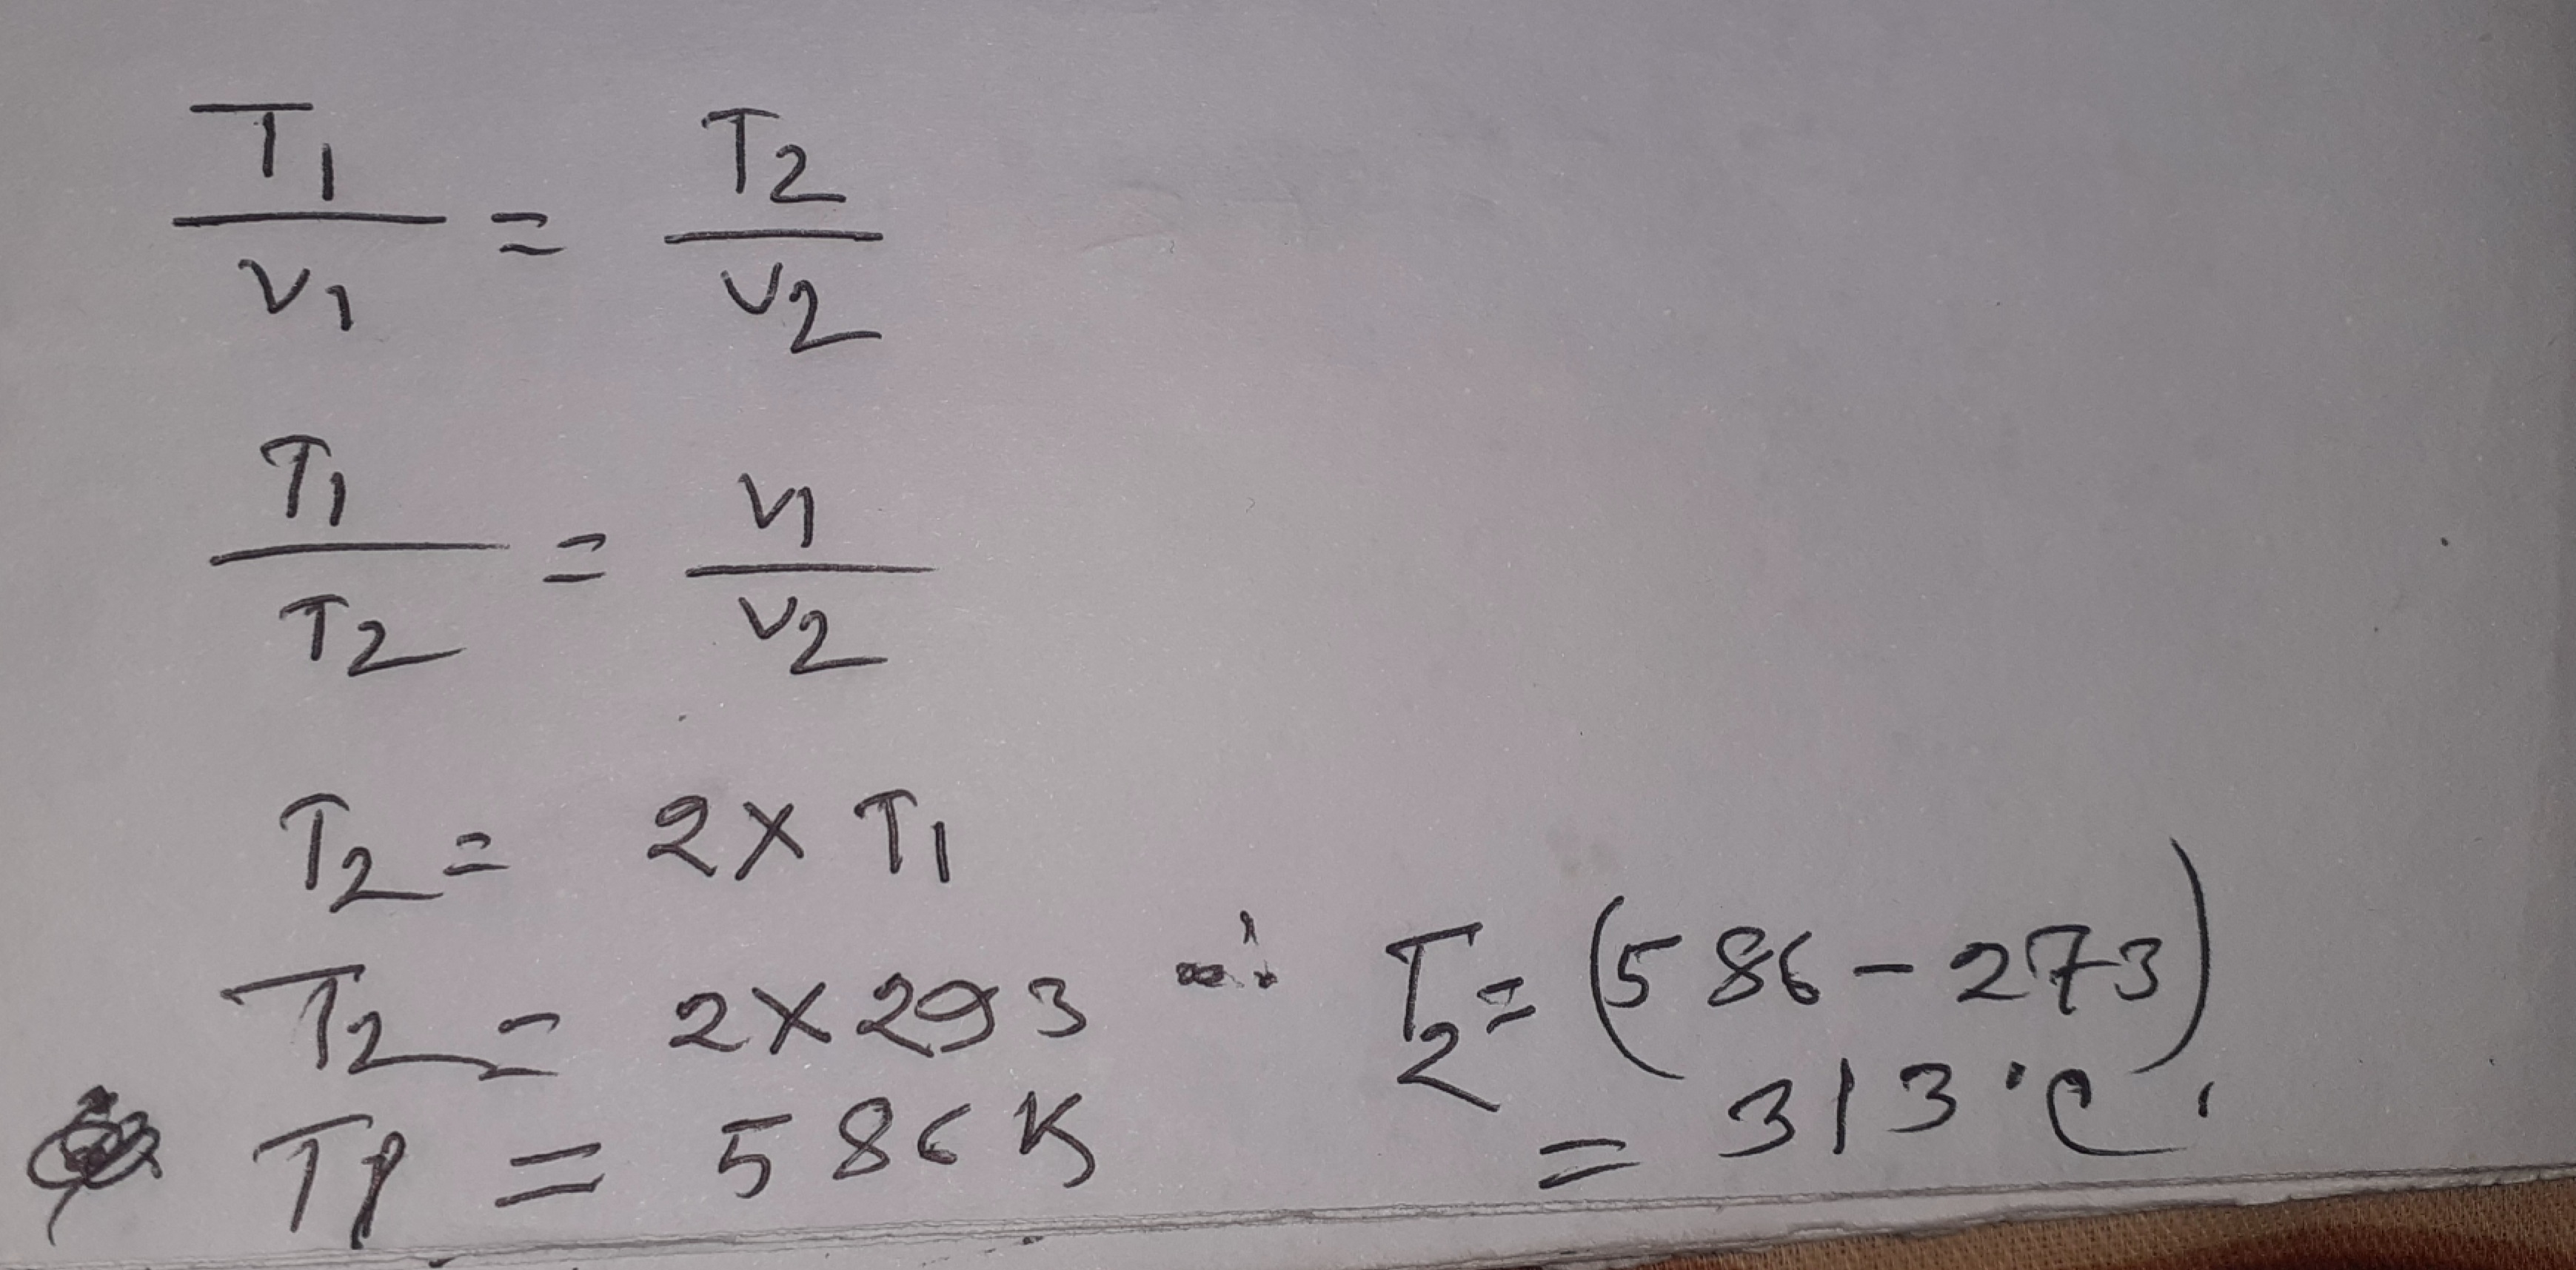 T1/V1 = T2/V2
T1/T2 = V1/V2
T2 = 2 X T1
T2 = 2 X 293 ∴ T2 = (586 - 273)
= 586 K = 313°C.